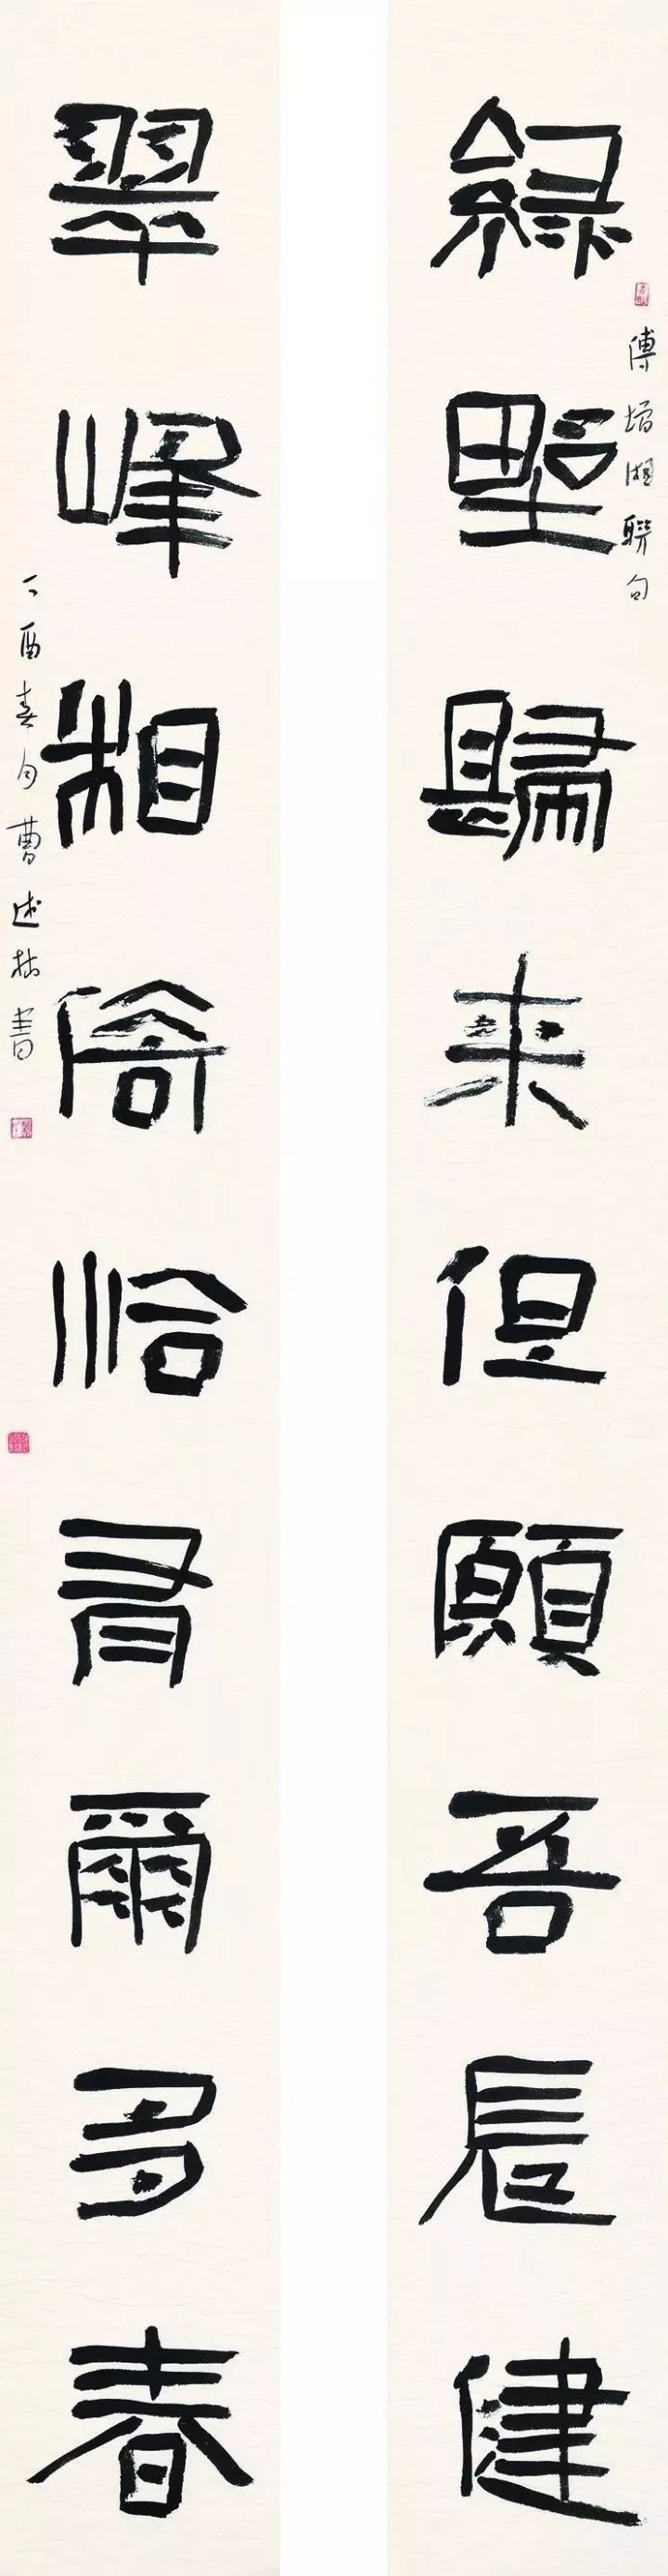 綠野歸来但願吾長健
傅增湘聯句
翠峰相倚恰有爾多春
丁酉春月曹述林書